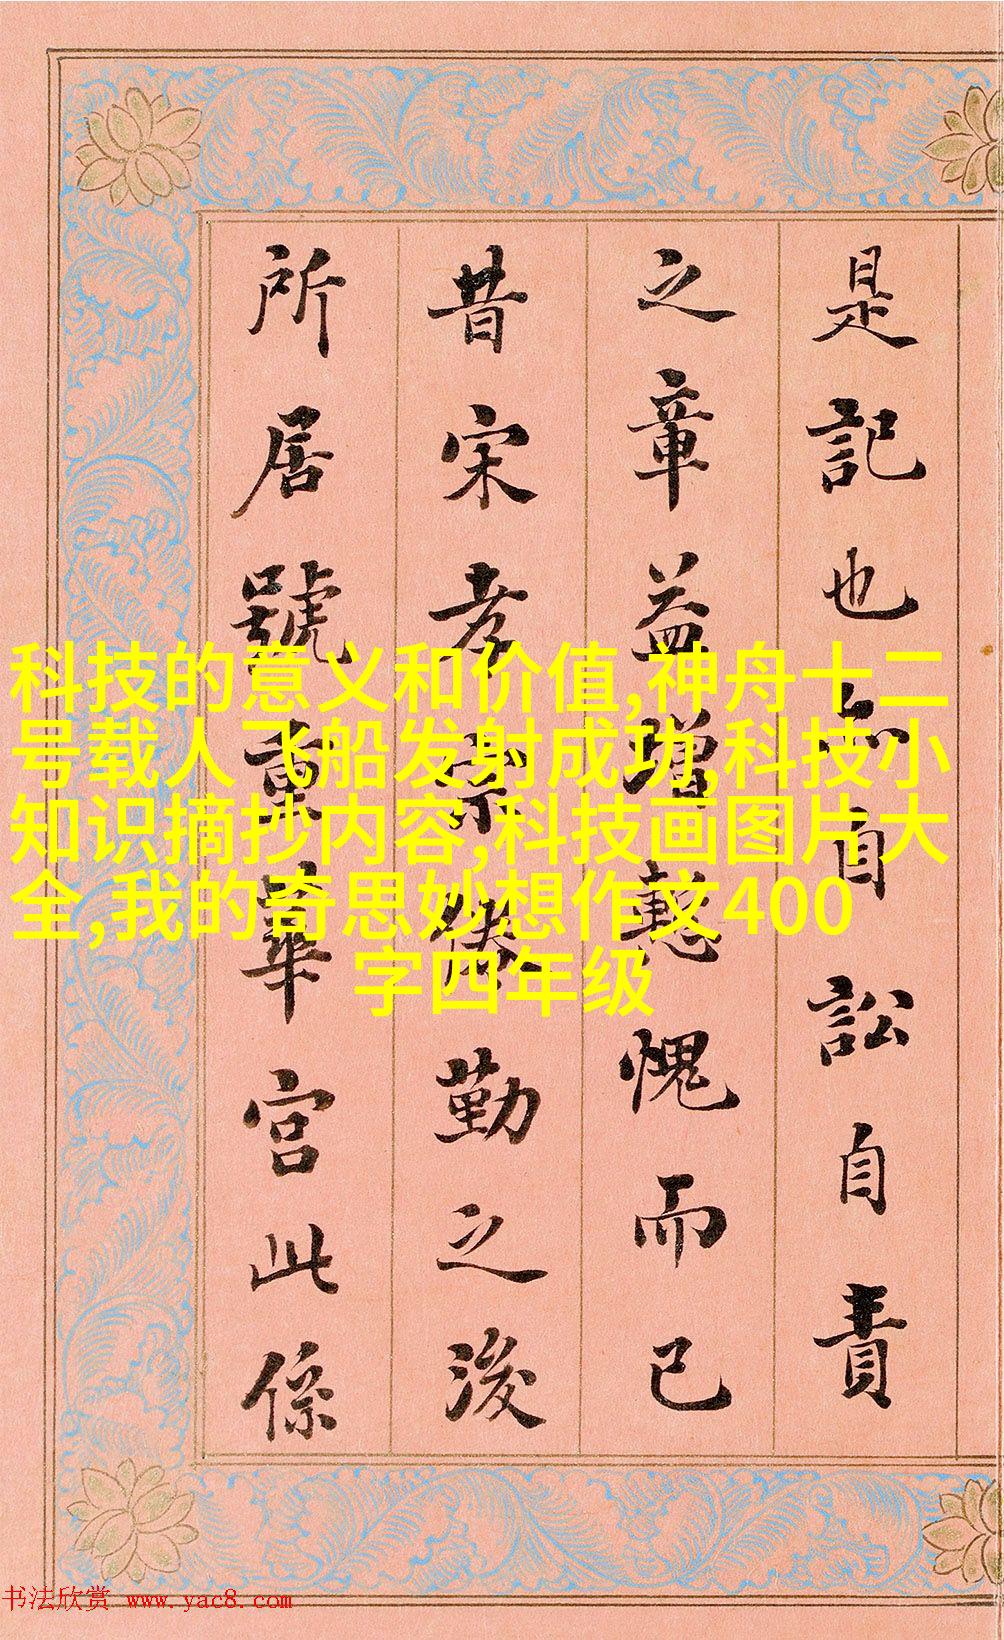 是記也自訟自責
之章益增慙愧而已
昔宋孝宗倦勤之後
所居號重華宮此係
科技的意义和价值,神舟十二
号载人飞船发射成功,科技小
知识摘抄内容,科技画图片大
全,我的奇思妙想作文400
字四年级
书法欣赏 www.yac8.com